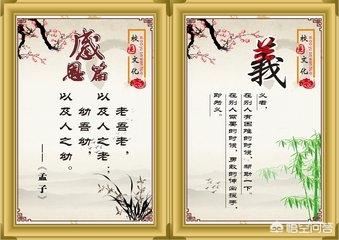 校园文化
感恩篇
老吾老，
以及人之老；
幼吾幼，
以及人之幼。
——《孟子》
校园文化
義
义者，
在别人有困难的时候，帮助一下，
在别人需要的时候，勇敢的伸出援手，
即所义。
悟空问答